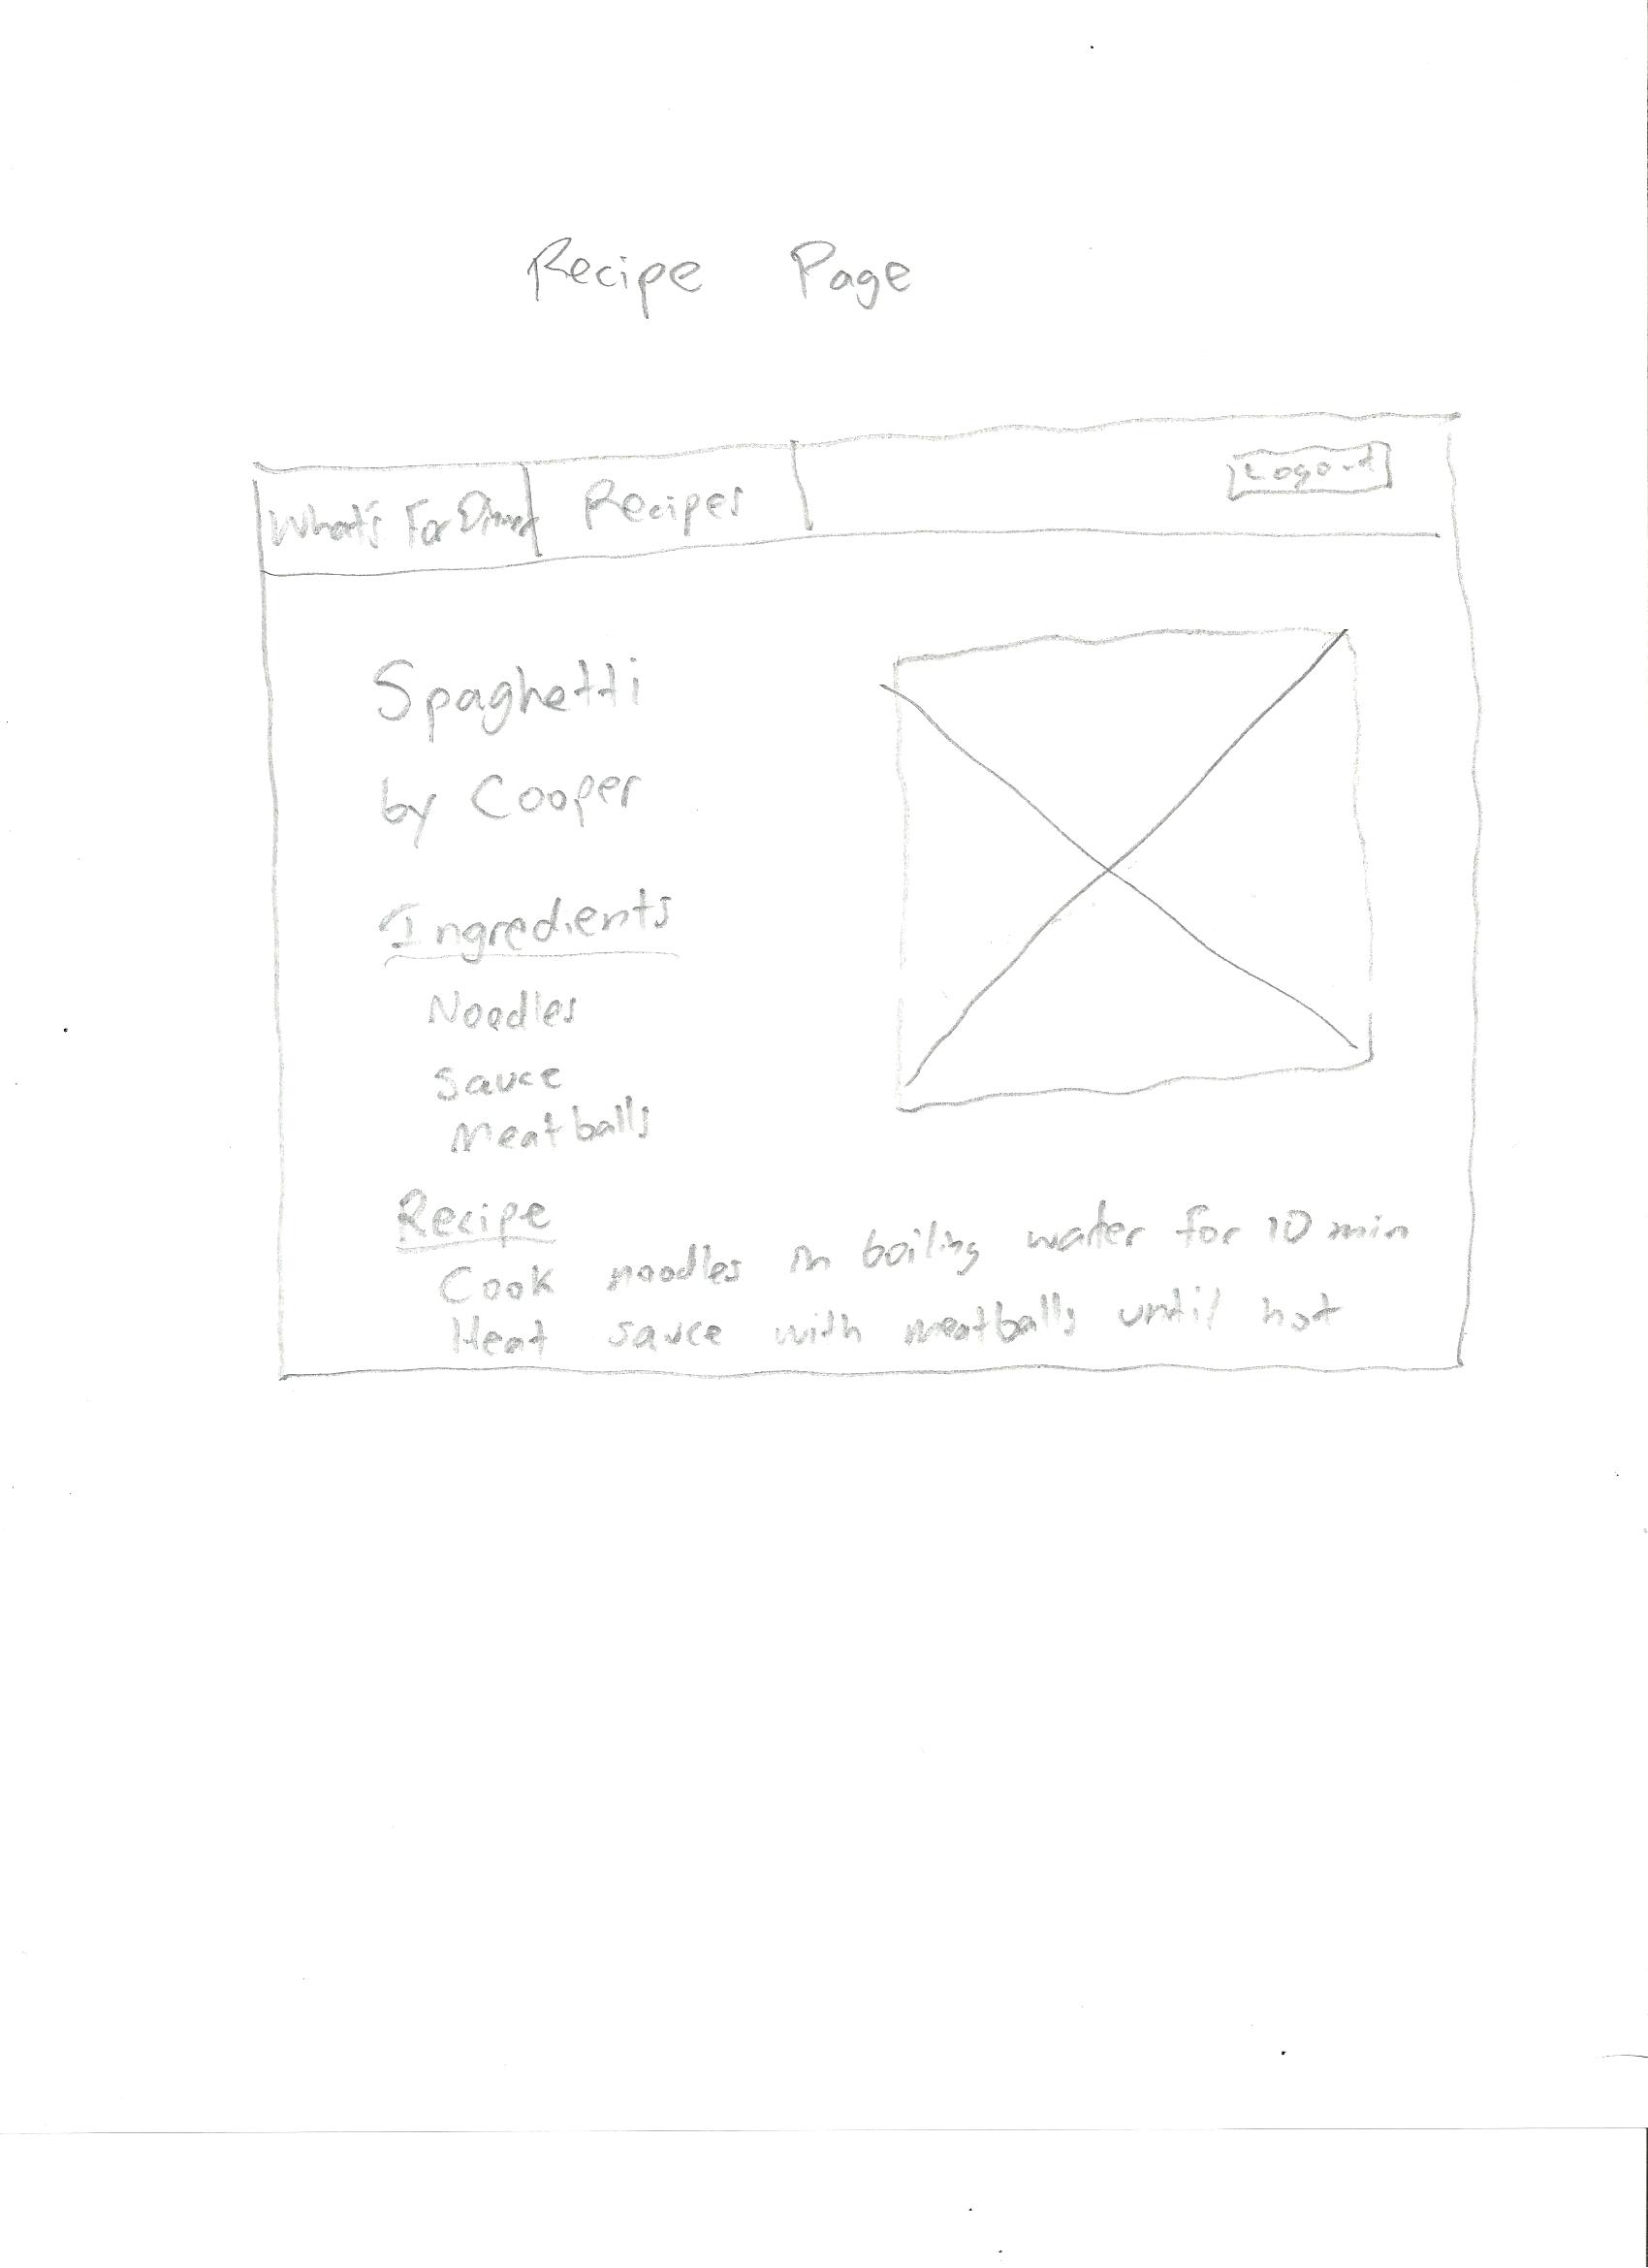 Recipe Page
What's For Dinner Recipes Logout
Spaghetti
by Cooper
Ingredients
Noodles
Sauce
Meatballs
Recipe
Cook noodles in boiling water for 10 min
Heat sauce with meatballs until hot